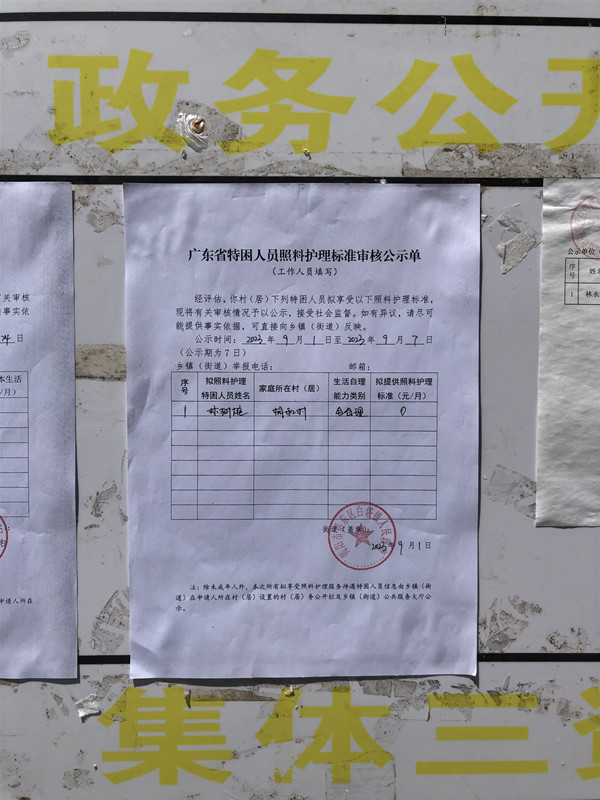 政务公开
广东省特困人员照料护理标准审核公示单
（工作人员填写）
经评估，你村（居）下列特困人员拟享受以下照料护理标准，
现将有关审核情况予以公示，接受社会监督。如有异议，请尽可
能提供事实依据，可直接向乡镇（街道）反映。
公示时间：2023年9月1日至2023年9月7日
（公示期为7日）
乡镇（街道）举报电话： 邮箱：
序号 拟照料护理特困人员姓名 家庭所在村（居） 生活自理能力类别 拟提供照料护理标准（元/月）
1 全自理 0
街道（盖章）：
2023年9月1日
注：除未成年人外，本次所有拟享受照料护理服务待遇特困人员信息由乡镇（街
道）在申请人所在村（居）设置的村（居）务公开栏及乡镇（街道）公共服务大厅公
示。
有关审核
事实依
24日
本生活
/月）
申请人所在
公示单位（
序号 姓名
1 林水
集体三资